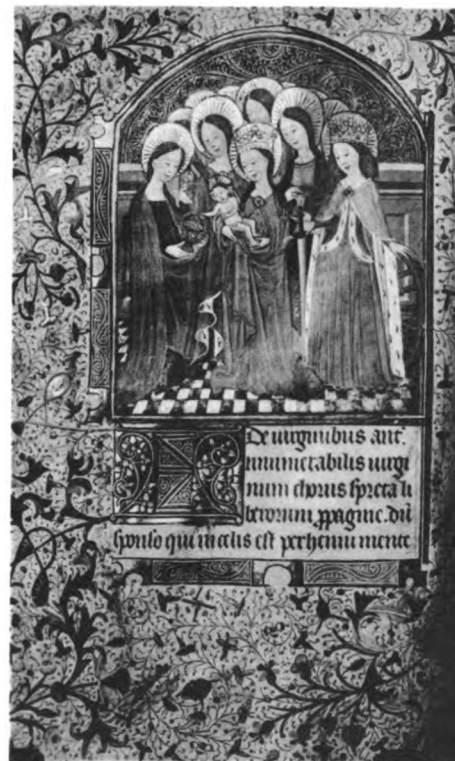 De uirginibus ant.
Innumerabilis uirgi
num chorus spreta li
berorum ꝓpagine. dū
sponso qui in celis est perhenni mente